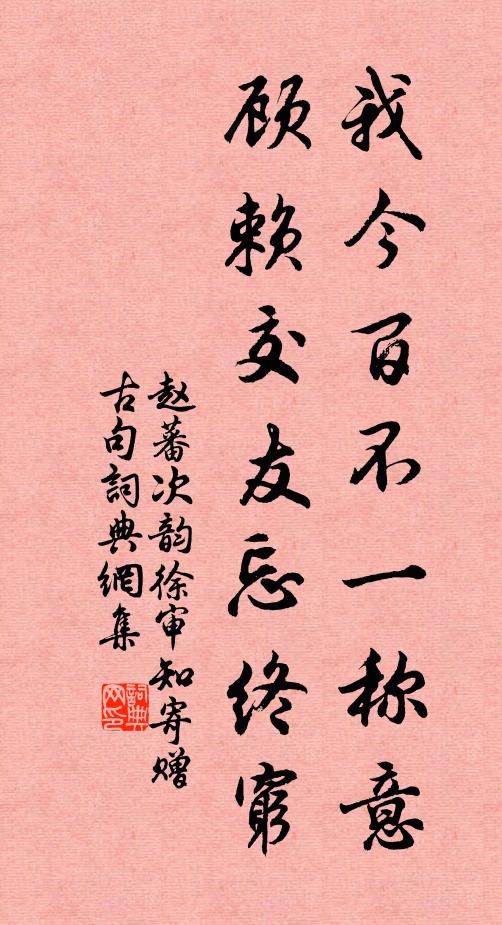 我今百不一称意
顾赖交友忘终窮
赵蕃次韵徐审知寄赠
古句詞典網集
詞典网印